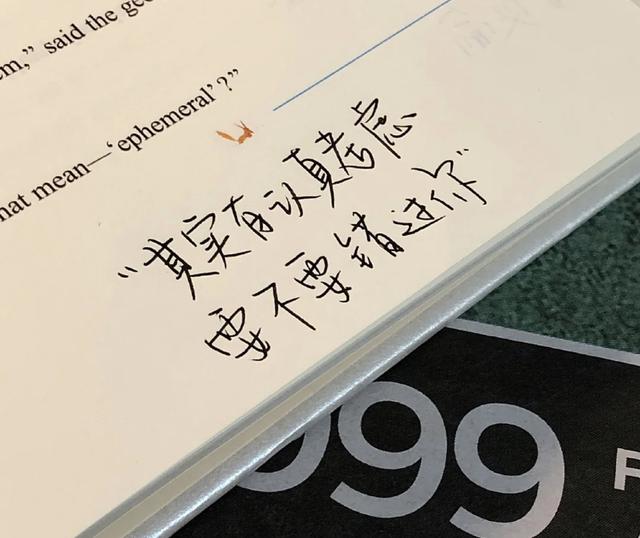 em,” said the geo
hat mean—‘ephemeral’?”
“其实有认真考虑
要不要错过你”
999